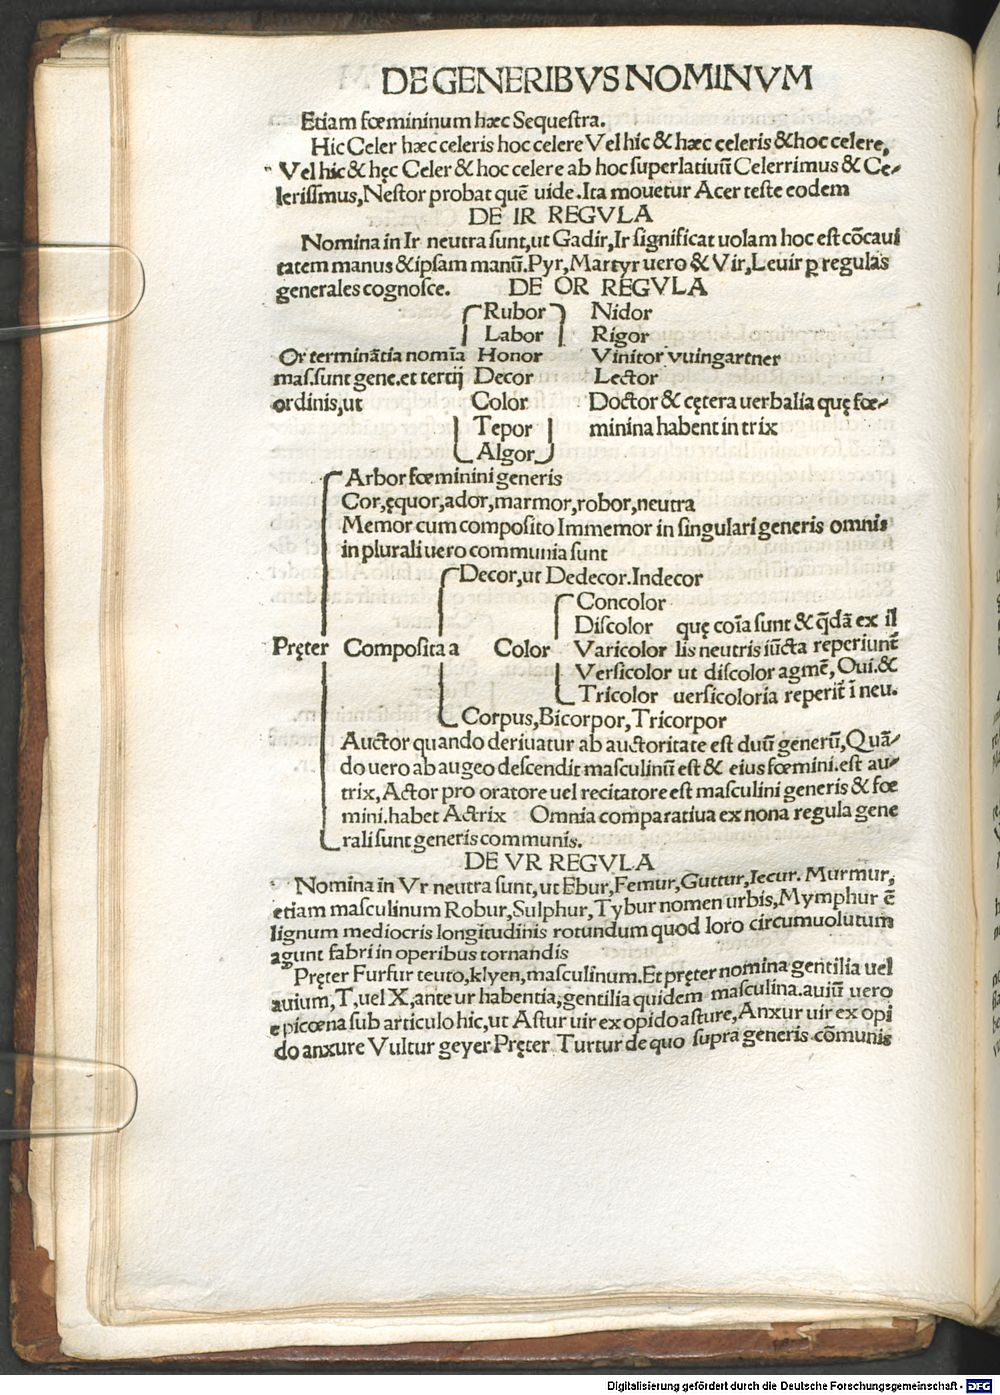 DE GENERIBVS NOMINVM
Etiam fœmininum hæc Sequestra.
Hic Celer hæc celeris hoc celere Vel hic & hæc celeris & hoc celere,
Vel hic & hęc Celer & hoc celere ab hoc superlatiuū Celerrimus & Ce-
lerissmus, Nestor probat quē uide. Ita mouetur Acer teste eodem
DE IR REGVLA
Nomina in Ir neutra sunt, ut Gadir, Ir significat uolam hoc est cōcaui
tatem manus & ipsam manū. Pyr, Martyr uero & Vir, Leuir ꝑ regulas
generales cognosce. DE OR REGVLA
Rubor Nidor
Labor Rigor
Or terminātia nomīa Honor Vinitor vuingartner
mas. sunt gene. et tertij Decor Lector
ordinis, ut Color Doctor & cętera uerbalia quę fœ-
Tepor minina habent in trix
Algor
Arbor fœminini generis
Cor, ęquor, ador, marmor, robor, neutra
Memor cum composito Immemor in singulari generis omnis
in plurali uero communia sunt
Decor, ut Dedecor. Indecor
Concolor
Discolor quę coīa sunt & q̄dā ex il
Pręter Composita a Color Varicolor lis neutris iūcta reperiunt̄
Versicolor ut discolor agmē, Oui. &
Tricolor uersicoloria reperit̄ ī neu.
Corpus, Bicorpor, Tricorpor
Auctor quando deriuatur ab auctoritate est duū generū, Quā-
do uero ab augeo descendit masculinū est & eius fœmini. est au-
trix, Actor pro oratore uel recitatore est masculini generis & fœ
mini. habet Actrix Omnia comparatiua ex nona regula gene
rali sunt generis communis.
DE VR REGVLA
Nomina in Vr neutra sunt, ut Ebur, Femur, Guttur, Iecur. Murmur,
etiam masculinum Robur, Sulphur, Tybur nomen urbis, Mymphur ē
lignum mediocris longitudinis rotundum quod loro circumuolutum
agunt fabri in operibus tornandis
Pręter Furfur teuto, klyen, masculinum. Et pręter nomina gentilia uel
auium, T, uel X, ante ur habentia, gentilia quidem masculina. auiū uero
epicœna sub articulo hic, ut Astur uir ex opido asture, Anxur uir ex opi
do anxure Vultur geyer Pręter Turtur de quo supra generis cōmunis
Digitalisierung gefördert durch die Deutsche Forschungsgemeinschaft - DFG